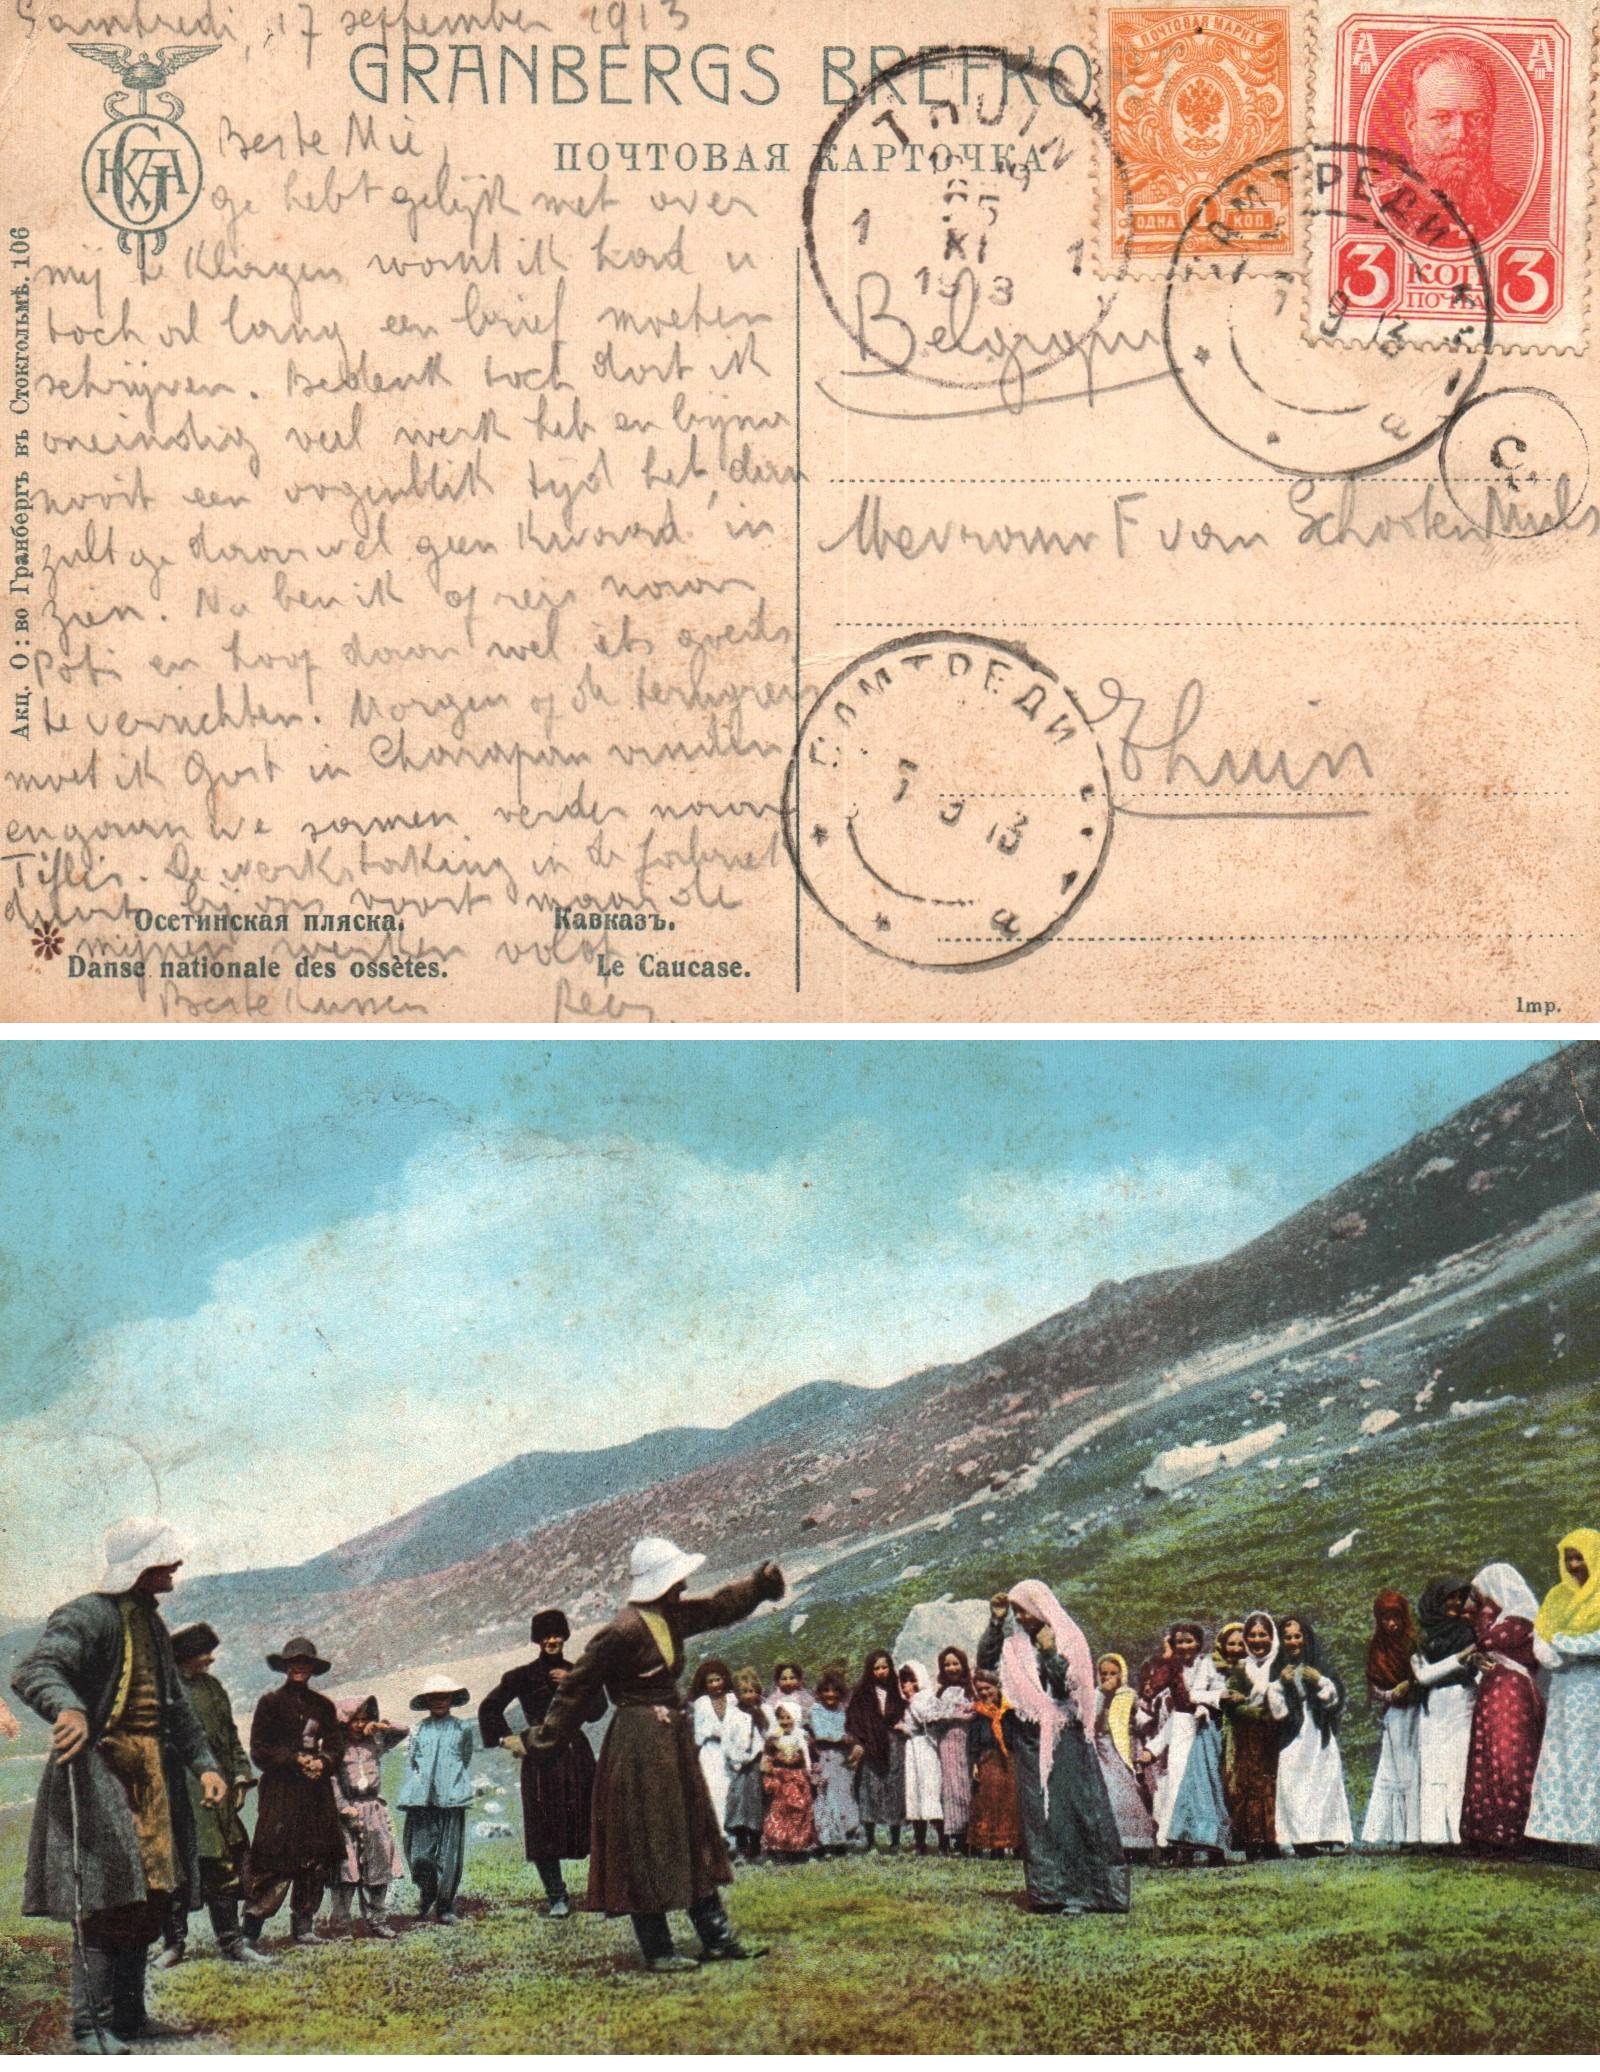 Samtredi, 17 september 1913
GRANBERGS BREFKO
ПОЧТОВАЯ КАРТОЧКА
Beste Mie,
ge hebt gelijk met over
mij te klagen want ik had u
toch al lang een brief moeten
schrijven. Bedenk toch dat ik
oneindig veel werk heb en bijna
nooit een oogenblik tijd heb, dan
zult ge daar wel geen kwaad in
zien. Nu ben ik op reis naar
Poti en hoop daar wel iets goeds
te verrichten. Morgen op de terugreis
moet ik Gust in Charapan vinden
en gaan we samen verder naar
Tiflis. De werkstaking in de fabriek
duurt bij ons voort maar de
mijnen werken volop
Beste kussen
Акц. О: во Гранбергъ въ Стокгольмѣ. 106
Осетинская пляска. Кавказъ.
Danse nationale des ossètes. Le Caucase.
ПОЧТОВАЯ МАРКА
ОДНА 1 КОП.
3 КОП 3
ПОЧТА
THUIN
XI
1913
1 1
САМТРЕДИ
7 9 13
а
Belgique
Mevrouw F van Schooten Nuls
Thuin
САМТРЕДИ
7 9 13
а
Imp.